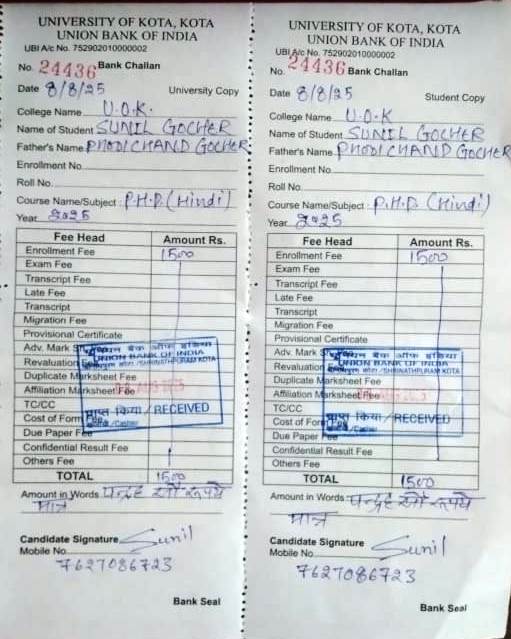 UNIVERSITY OF KOTA, KOTA
UNION BANK OF INDIA
UBI A/c No. 752902010000002
No. 24436 Bank Challan
Date 8/8/25 University Copy
College Name U.O.K.
Name of Student SUNIL GOCHER
Father's Name PHODICHAND GOCHER
Enrollment No.
Roll No.
Course Name/Subject : P.H.D. (Hindi)
Year 2025
Fee Head Amount Rs.
Enrollment Fee 1500
Exam Fee
Transcript Fee
Late Fee
Transcript
Migration Fee
Provisional Certificate
Adv. Mark
Revaluation
Duplicate Marksheet Fee
Affiliation Marksheet Fee
TC/CC
Cost of Form Fee
Due Paper Fee
Confidential Result Fee
Others Fee
TOTAL 1500
यूनियन बैंक ऑफ इंडिया
UNION BANK OF INDIA
/SHRINATHPURAM KOTA
प्राप्त किया / RECEIVED
/Cashier
Amount in Words पन्द्रह सौ रूपये
मात्र
Candidate Signature Sunil
Mobile No.
7627086723
Bank Seal
UNIVERSITY OF KOTA, KOTA
UNION BANK OF INDIA
UBI A/c No. 752902010000002
No. 24436 Bank Challan
Date 8/8/25 Student Copy
College Name U.O.K
Name of Student SUNIL GOCHER
Father's Name PHODICHAND GOCHER
Enrollment No.
Roll No.
Course Name/Subject : P.H.D. (Hindi)
Year 2025
Fee Head Amount Rs.
Enrollment Fee 1500
Exam Fee
Transcript Fee
Late Fee
Transcript
Migration Fee
Provisional Certificate
Adv. Mark
Revaluation
Duplicate Marksheet Fee
Affiliation Marksheet Fee
TC/CC
Cost of Form Fee
Due Paper Fee
Confidential Result Fee
Others Fee
TOTAL 1500
यूनियन बैंक ऑफ इंडिया
UNION BANK OF INDIA
/SHRINATHPURAM KOTA
प्राप्त किया / RECEIVED
/Cashier
Amount in Words : पन्द्रह सौ रूपये
मात्र
Candidate Signature Sunil
Mobile No.
7627086723
Bank Seal